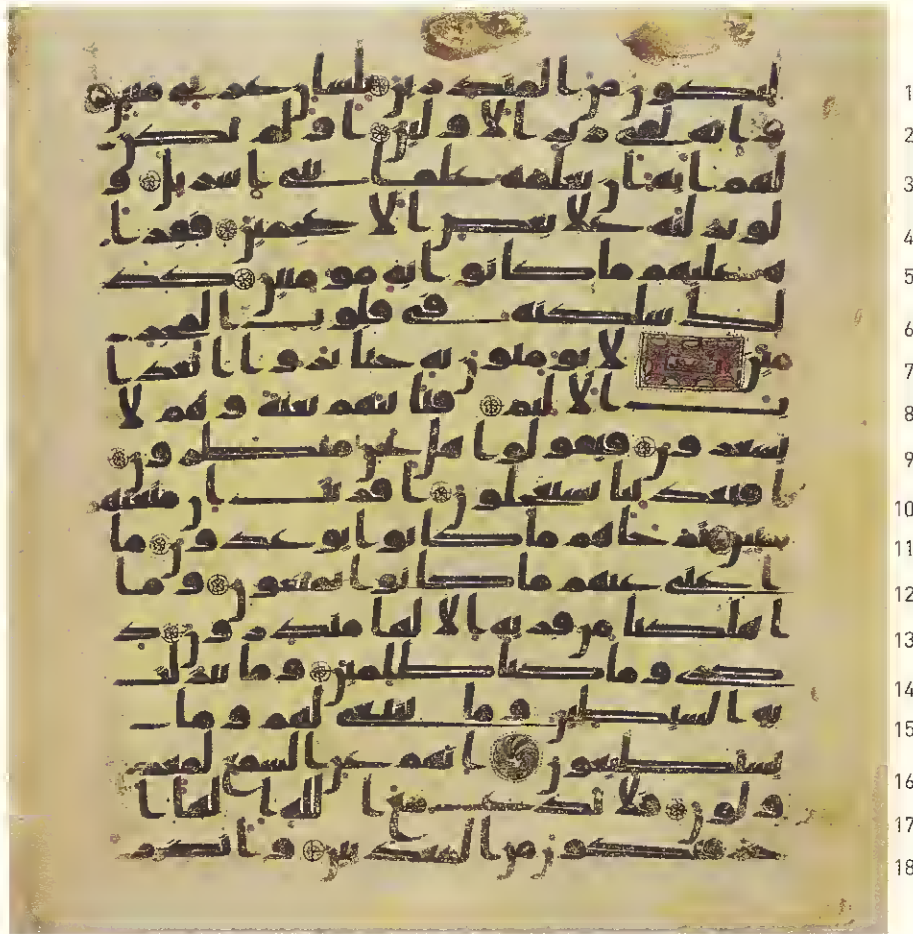 لتكون من المنذرين بلسان عربى مبين 1
وانه لفى زبر الاولين اولم يكن 2
لهم ايه ان يعلمه علموا بنى اسريل و 3
لو نزلنه على بعض الاعجمين فقرا 4
ه عليهم ما كانوا به مومنين كذ 5
لك سلكنه فى قلوب المجر 6
مين لا يومنون به حتى يروا العذا 7
ب الاليم فياتيهم بغتة وهم لا 8
يشعرون فيقولوا هل نحن منظرون 9
افبعذابنا يستعجلون افريت ان متعنهم 10
سنين ثم جاهم ما كانوا يوعدون ما 11
اغنى عنهم ما كانوا يمتعون وما 12
اهلكنا من قريه الا لها منذرون ذ 13
كرى وما كنا ظلمين وما تنزلت 14
به الشيطين وما ينبغى لهم وما 15
يستطيعون انهم عن السمع لمعز 16
ولون فلا تدع مع الله الها ا 17
خر فتكون من المعذبين وانذر 18